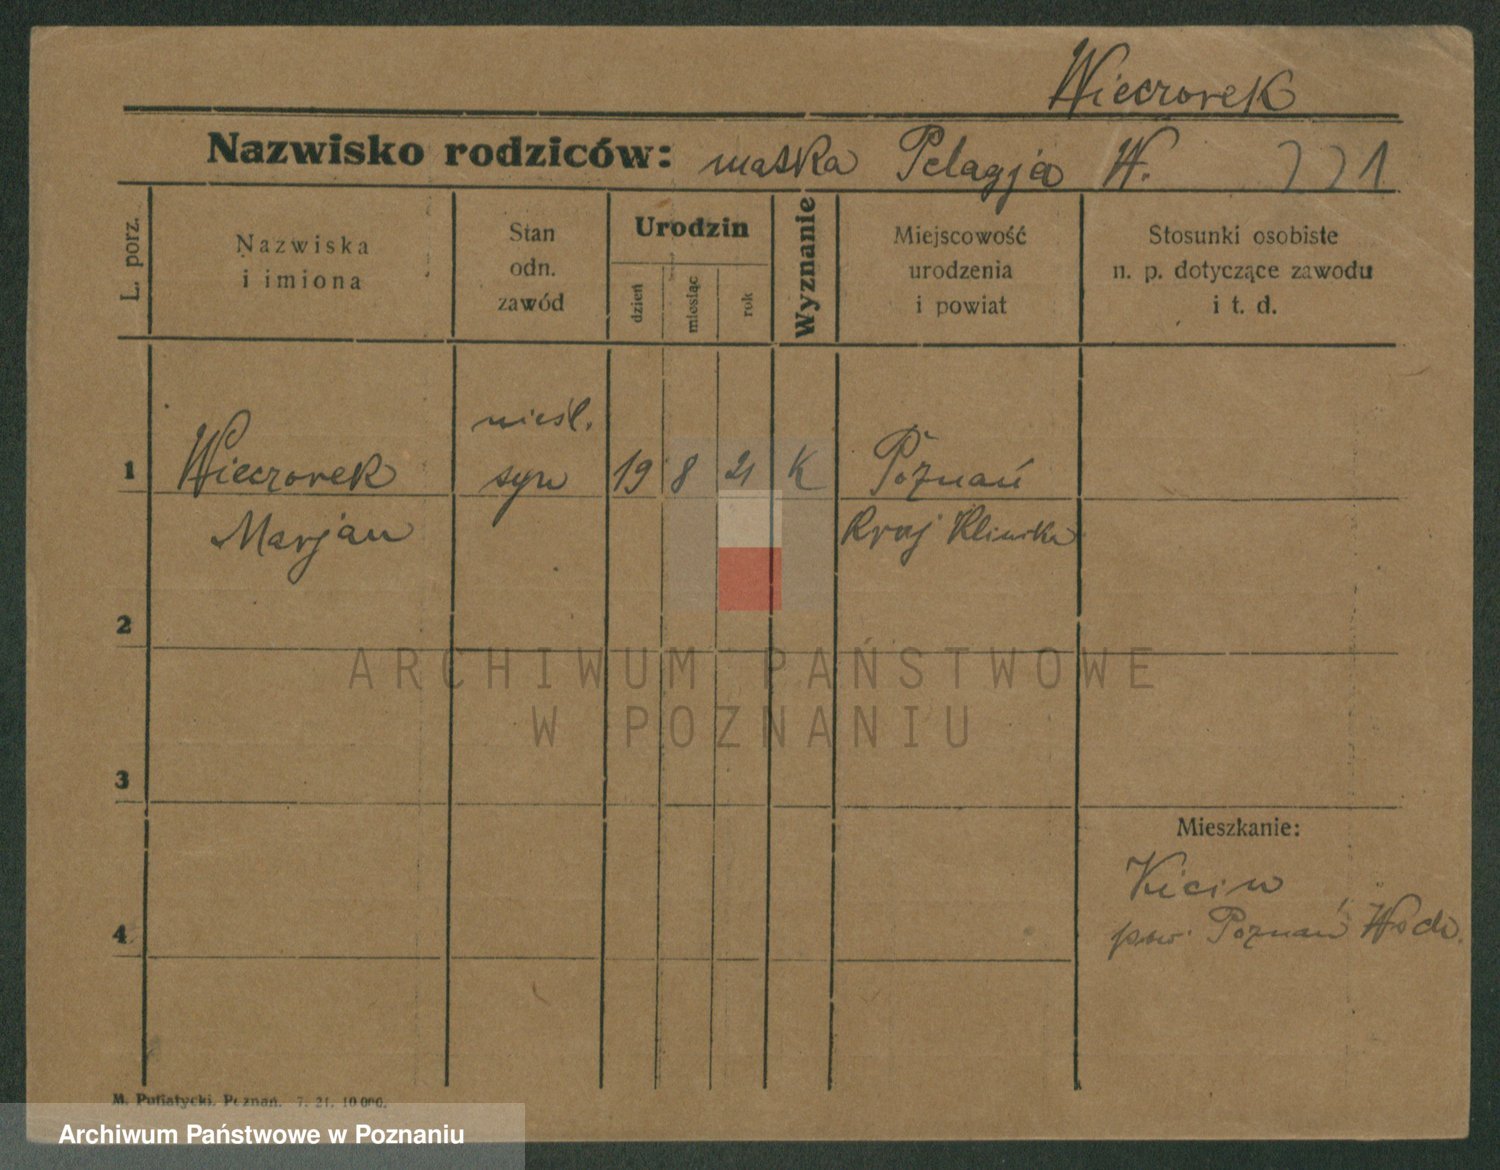 Wieczorek
Nazwisko rodziców: matka Pelagja W. 221
L. porz.
Nazwiska
i imiona
Stan
odn.
zawód
Urodzin
dzień
miesiąc
rok
Wyznanie
Miejscowość
urodzenia
i powiat
Stosunki osobiste
n. p. dotyczące zawodu
i t. d.
nieśl.
1 Wieczorek syn 19 8 21 K Poznań
Marjan Kraj Klinika
2
ARCHIWUM PAŃSTWOWE
W POZNANIU
3
Mieszkanie:
Kicin
pow. Poznań Wsch.
4
M. Putiatycki. Poznań. 7. 21. 10 000.
Archiwum Państwowe w Poznaniu